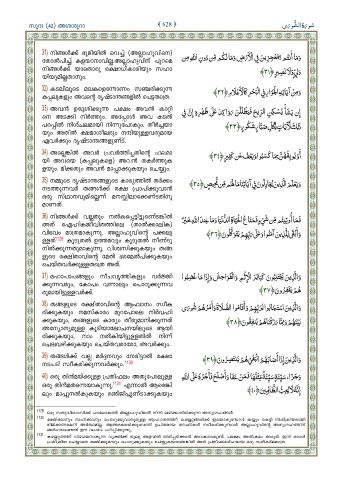 സൂറ (42) അശ്ശൂറാ
( 628 )
سورة الشورى
31) നിങ്ങൾക്ക് ഭൂമിയിൽ വെച്ച് (അല്ലാഹുവിനെ)
തോൽപിച്ച് കളയാനാവില്ല. അല്ലാഹുവിന് പുറമെ
നിങ്ങൾക്ക് യാതൊരു രക്ഷാധികാരിയും സഹാ
യിയുമില്ലതാനും.
وَمَا أَنتُم بِمُعْجِزِينَ فِي الْأَرْضِ وَمَا لَكُم مِّن دُونِ اللَّهِ مِن
وَلِيٍّ وَلَا نَصِيرٍ ﴿٣١﴾
32) കടലിലൂടെ മലകളെന്നോണം സഞ്ചരിക്കുന്ന
കപ്പലുകളും അവന്റെ ദൃഷ്ടാന്തങ്ങളിൽ പെട്ടതത്രെ.
وَمِنْ آيَاتِهِ الْجَوَارِ فِي الْبَحْرِ كَالْأَعْلَامِ ﴿٣٢﴾
33) അവൻ ഉദ്ദേശിക്കുന്ന പക്ഷം അവൻ കാറ്റി
നെ അടക്കി നിർത്തും. അപ്പോൾ അവ കടൽ
പരപ്പിൽ നിശ്ചലമായി നിന്നുപോകും. തീർച്ചയാ
യും അതിൽ ക്ഷമാശീലരും നന്ദിയുള്ളവരുമായ
ഏവർക്കും ദൃഷ്ടാന്തങ്ങളുണ്ട്.
إِن يَشَأْ يُسْكِنِ الرِّيحَ فَيَظْلَلْنَ رَوَاكِدَ عَلَىٰ ظَهْرِهِ إِنَّ فِي
ذَٰلِكَ لَآيَاتٍ لِّكُلِّ صَبَّارٍ شَكُورٍ ﴿٣٣﴾
34) അല്ലെങ്കിൽ അവർ പ്രവർത്തിച്ചതിന്റെ ഫലമാ
യി അവയെ (കപ്പലുകളെ) അവൻ തകർത്തുക
ളയും. മിക്കതും അവൻ മാപ്പാക്കുകയും ചെയ്യും.
أَوْ يُوبِقْهُنَّ بِمَا كَسَبُوا وَيَعْفُ عَن كَثِيرٍ ﴿٣٤﴾
35) നമ്മുടെ ദൃഷ്ടാന്തങ്ങളുടെ കാര്യത്തിൽ തർക്കം
നടത്തുന്നവർ തങ്ങൾക്ക് രക്ഷ പ്രാപിക്കുവാൻ
ഒരു സ്ഥാനവുമില്ലെന്ന് മനസ്സിലാക്കേണ്ടതിനു
മാണത്.
وَيَعْلَمَ الَّذِينَ يُجَادِلُونَ فِي آيَاتِنَا مَا لَهُم مِّن مَّحِيصٍ ﴿٣٥﴾
36) നിങ്ങൾക്ക് വല്ലതും നൽകപ്പെട്ടിട്ടുണ്ടെങ്കിൽ
അത് ഐഹികജീവിതത്തിലെ (താൽക്കാലിക)
വിഭവം മാത്രമാകുന്നു. അല്ലാഹുവിന്റെ പക്കലു
ള്ളത് കൂടുതൽ ഉത്തമവും കൂടുതൽ നീണ്ടു
നിൽക്കുന്നതുമാകുന്നു. വിശ്വസിക്കുകയും തങ്ങ
ളുടെ രക്ഷിതാവിന്റെ മേൽ ഭരമേൽപിക്കുകയും
ചെയ്തവർക്കുള്ളതത്രെ അത്.
فَمَا أُوتِيتُم مِّن شَيْءٍ فَمَتَاعُ الْحَيَاةِ الدُّنْيَا وَمَا عِندَ اللَّهِ خَيْرٌ
وَأَبْقَىٰ لِلَّذِينَ آمَنُوا وَعَلَىٰ رَبِّهِمْ يَتَوَكَّلُونَ ﴿٣٦﴾
37) മഹാപാപങ്ങളും നീചവൃത്തികളും വർജ്ജി
ക്കുന്നവരും, കോപം വന്നാലും പൊറുക്കുന്നവ
രുമായിട്ടുള്ളവർക്ക്.
وَالَّذِينَ يَجْتَنِبُونَ كَبَائِرَ الْإِثْمِ وَالْفَوَاحِشَ وَإِذَا مَا غَضِبُوا
هُمْ يَغْفِرُونَ ﴿٣٧﴾
38) തങ്ങളുടെ രക്ഷിതാവിന്റെ ആഹ്വാനം സ്വീക
രിക്കുകയും നമസ്കാരം മുറപോലെ നിർവഹി
ക്കുകയും, തങ്ങളുടെ കാര്യം തീരുമാനിക്കുന്നത്
അന്യോന്യമുള്ള കൂടിയാലോചനയിലൂടെ ആയി
രിക്കുകയും, നാം നൽകിയിട്ടുള്ളതിൽ നിന്ന്
ചെലവഴിക്കുകയും ചെയ്തവരാരോ, അവർക്കും.
وَالَّذِينَ اسْتَجَابُوا لِرَبِّهِمْ وَأَقَامُوا الصَّلَاةَ وَأَمْرُهُمْ شُورَىٰ
بَيْنَهُمْ وَمِمَّا رَزَقْنَاهُمْ يُنفِقُونَ ﴿٣٨﴾
39) തങ്ങൾക്ക് വല്ല മർദ്ദനവും നേരിട്ടാൽ രക്ഷാ
നടപടി സ്വീകരിക്കുന്നവർക്കും.
وَالَّذِينَ إِذَا أَصَابَهُمُ الْبَغْيُ هُمْ يَنتَصِرُونَ ﴿٣٩﴾
40) ഒരു തിന്മയ്ക്കുള്ള പ്രതിഫലം അതുപോലുള്ള
ഒരു തിന്മതന്നെയാകുന്നു. എന്നാൽ ആരെങ്കി
ലും മാപ്പുനൽകുകയും രഞ്ജിപ്പുണ്ടാക്കുകയും
وَجَزَاءُ سَيِّئَةٍ سَيِّئَةٌ مِّثْلُهَا فَمَنْ عَفَا وَأَصْلَحَ فَأَجْرُهُ عَلَى اللَّهِ
إِنَّهُ لَا يُحِبُّ الظَّالِمِينَ ﴿٤٠﴾